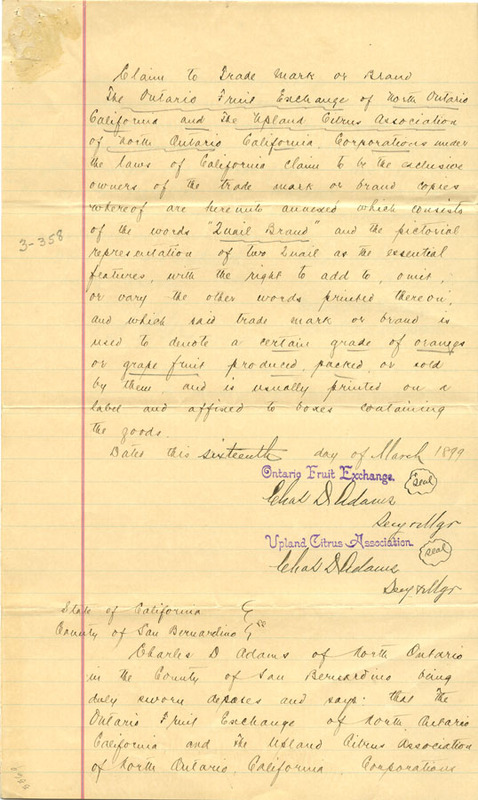 Claim to Trade Mark or Brand
The Ontario Fruit Exchange of North Ontario
California and The Upland Citrus Association
of North Ontario California Corporations under
the laws of California claim to be the exclusive
owners of the trade mark or brand copies
whereof are hereunto annexed which consists
of the words "Quail Brand" and the pictorial
3-358
representation of two Quail as the essential
features, with the right to add to, omit,
or vary the other words printed thereon,
and which said trade mark or brand is
used to denote a certain grade of oranges
or grape fruit produced, packed or sold
by them and is usually printed on a
label and affixed to boxes containing
the goods.
Dates this sixteenth day of March 1899
Ontario Fruit Exchange.
seal
Chas D Adams
Secy & Mgr
Upland Citrus Association.
seal
Chas D Adams
Secy & Mgr
State of California
County of San Bernardino ss
Charles D Adams of North Ontario
in the County of San Bernardino being
duly sworn deposes and says: that The
Ontario Fruit Exchange of North Ontario
California and The Upland Citrus Association
of North Ontario, California, Corporations